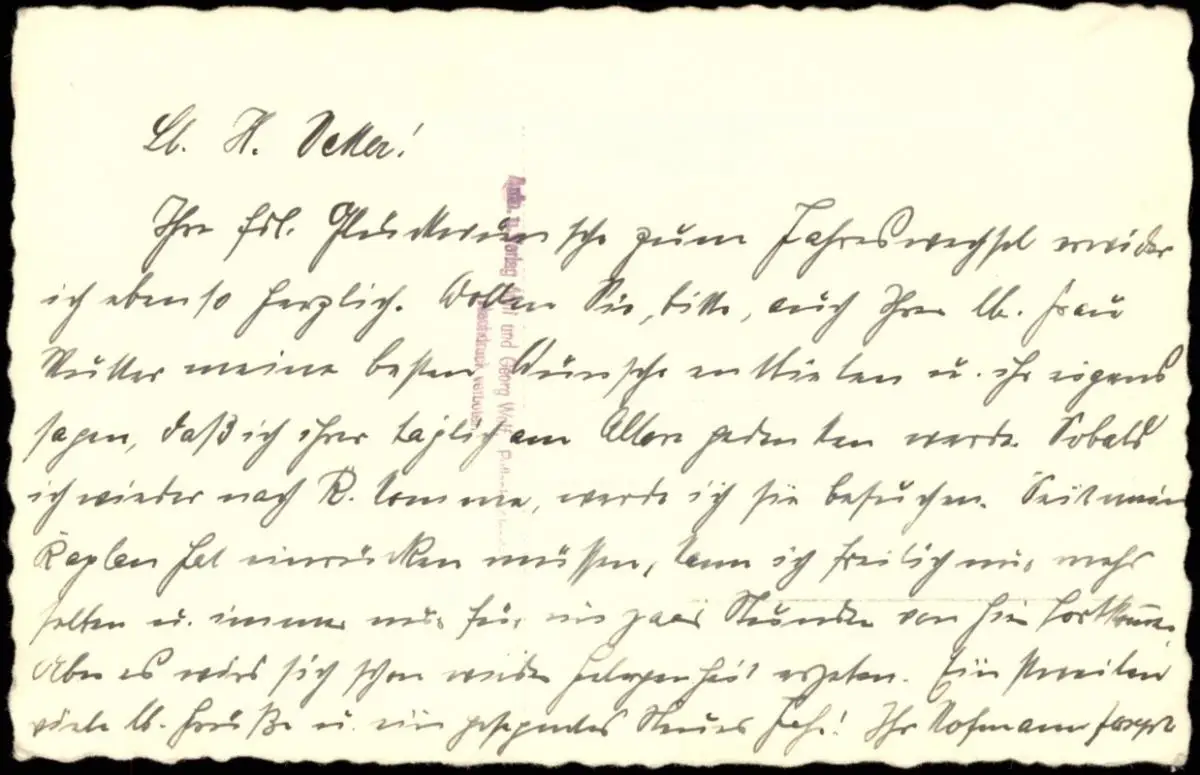 Lb. H. Vetter!
Ihre frdl. Glückwünsche zum Jahreswechsel erwider
ich ebenso herzlich. Wollen Sie, bitte, auch Ihrer lb. Frau
Mutter meine besten Wünsche entbieten u. ihr eigens
sagen, daß ich ihrer täglich am Altare gedenken werde. Sobald
ich wieder nach R. komme, werde ich sie besuchen. Seit mein
Kaplan hat einrücken müssen, kann ich freilich nur mehr
selten u. immer nur für ein paar Stunden von hier fortkommen.
Aber es wird sich schon wieder Gelegenheit ergeben. Einstweilen
viele lb. Grüße u. ein gesegnetes Neues Jahr! Ihr Hofmann
Verlag und Georg Wolf,
Nachdruck verboten